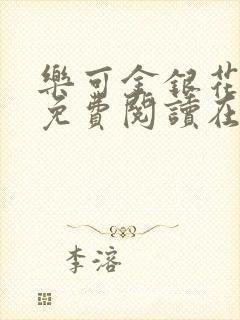 樂可金銀花
免費閱讀在
李溶